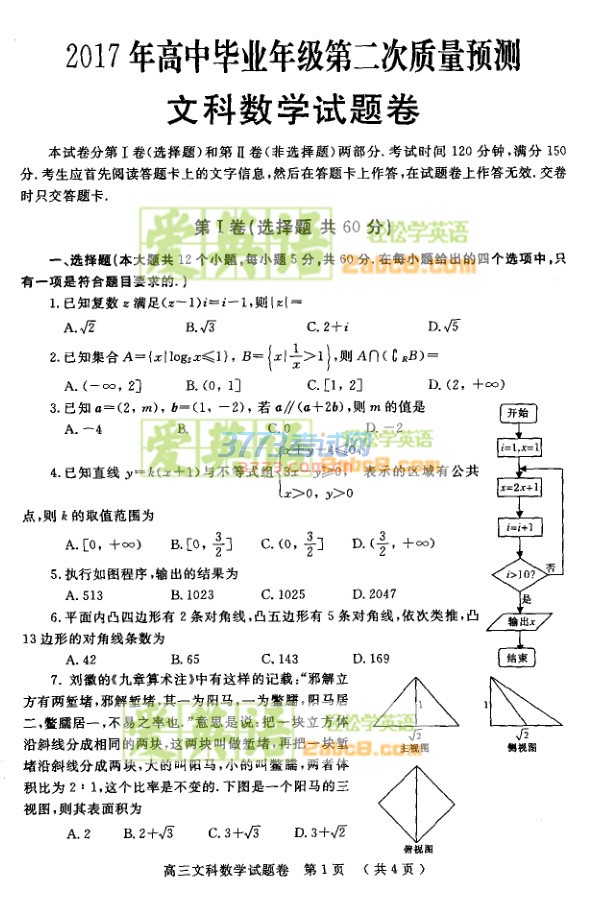 2017年高中毕业年级第二次质量预测
文科数学试题卷
本试卷分第Ⅰ卷(选择题)和第Ⅱ卷(非选择题)两部分.考试时间120分钟,满分150
分.考生应首先阅读答题卡上的文字信息,然后在答题卡上作答,在试题卷上作答无效.交卷
时只交答题卡.
第Ⅰ卷(选择题 共60分)
一、选择题(本大题共12个小题,每小题5分,共60分.在每小题给出的四个选项中,只
有一项是符合题目要求的.)
1.已知复数z满足(z-1)i=i-1,则|z|=
A.√2 B.√3 C.2+i D.√5
2.已知集合A={x|log₂x≤1},B={x|1/x>1},则A∩(∁RB)=
A.(-∞,2] B.(0,1] C.[1,2] D.(2,+∞)
3.已知a=(2,m),b=(1,-2),若a∥(a+2b),则m的值是
A.-4 B. C.0 D.-2
x+y-4≤0,
4.已知直线y=k(x+1)与不等式组{3x-y≥0, 表示的区域有公共
x>0,y>0
点,则k的取值范围为
A.[0,+∞) B.[0,3/2] C.(0,3/2] D.(3/2,+∞)
5.执行如图程序,输出的结果为
A.513 B.1023 C.1025 D.2047
6.平面内凸四边形有2条对角线,凸五边形有5条对角线,依次类推,凸
13边形的对角线条数为
A.42 B.65 C.143 D.169
7.刘徽的《九章算术注》中有这样的记载:“邪解立
方有两堑堵,邪解堑堵,其一为阳马,一为鳖臑,阳马居
二,鳖臑居一,不易之率也.”意思是说:把一块立方体
沿斜线分成相同的两块,这两块叫做堑堵,再把一块堑
堵沿斜线分成两块,大的叫阳马,小的叫鳖臑,两者体
积比为2:1,这个比率是不变的.下图是一个阳马的三
视图,则其表面积为
A.2 B.2+√3 C.3+√3 D.3+√2
开始
i=1,x=1
x=2x+1
i=i+1
i>10?
否
是
输出x
结束
1
√2
主视图
1
√2
侧视图
俯视图
高三文科数学试题卷 第1页 (共4页)
爱英语
轻松学英语
2abc8.com
3773考试网
3773.com
轻松学英语
2abc8.com
爱英语
轻松学英语
2abc8.com